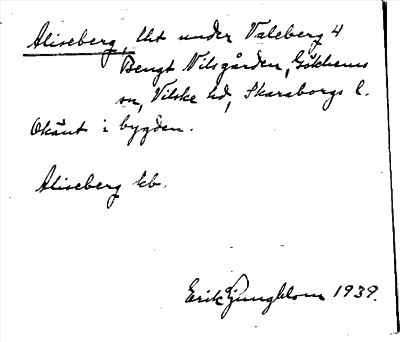 Aliseberg, lht under Valeberg 4
Bengt Nilsgården, Gökhems
sn, Vilske hd, Skaraborgs l.
Okänt i bygden.
Aliseberg kb.
Erik Ljungblom 1939.